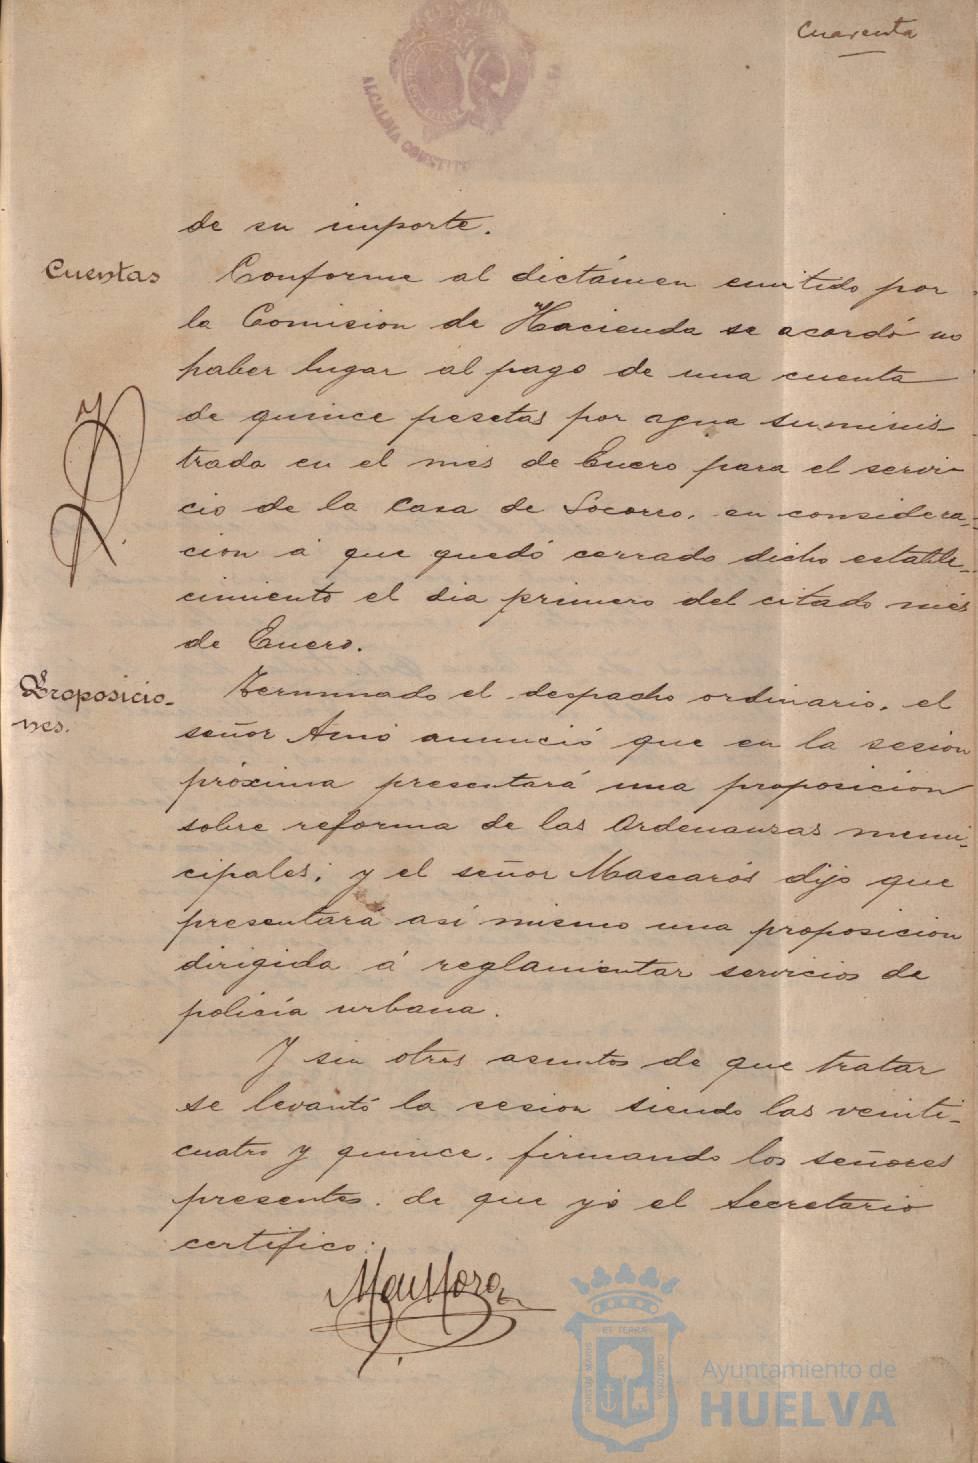 Cuarenta
ALCALDIA CONSTIT
de su importe.
Cuentas
Conforme al dictámen emitido por
la Comision de Hacienda se acordó no
haber lugar al pago de una cuenta
de quince pesetas por agua suminis-
trada en el mes de Enero para el servi-
cio de la Casa de Socorro, en considera-
cion á que quedó cerrado dicho estable-
cimiento el dia primero del citado mes
de Enero.
Proposicio-
nes.
Terminado el despacho ordinario, el
señor Amo anunció que en la sesion
próxima presentará una proposicion
sobre reforma de las Ordenanzas muni-
cipales; y el señor Mascarós dijo que
presentará asi mismo una proposicion
dirigida á reglamentar servicios de
policía urbana.
Y sin otros asuntos de que tratar
se levantó la sesion siendo las veinti-
cuatro y quince, firmando los señores
presentes, de que yo el Secretario
certifico:
PORTUS MARIS ET TERRAE CUSTODIA
Ayuntamiento de
HUELVA